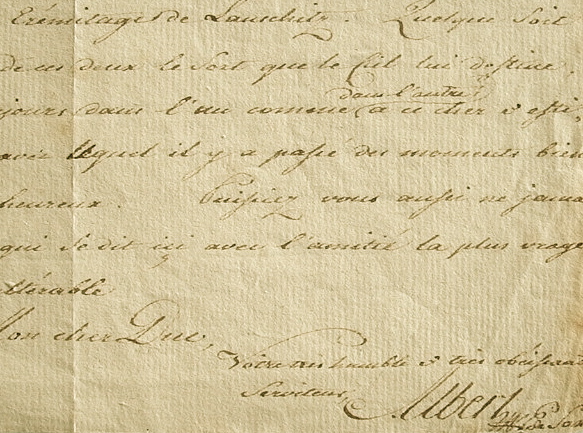 Erémitage de Lauschitz. Quelque soit
de ces deux le sort que le Ciel lui destine,
jours dans l'un comme dans l'autre a ce cher &
avec lequel il y a passé des moments bien
heureux. Puissiez vous aussi ne jama
qui se dit ici avec l'amitié la plus vraye
altérable
Mon cher Duc,
Votre tres humble & très obéissant
Serviteur,
Albert